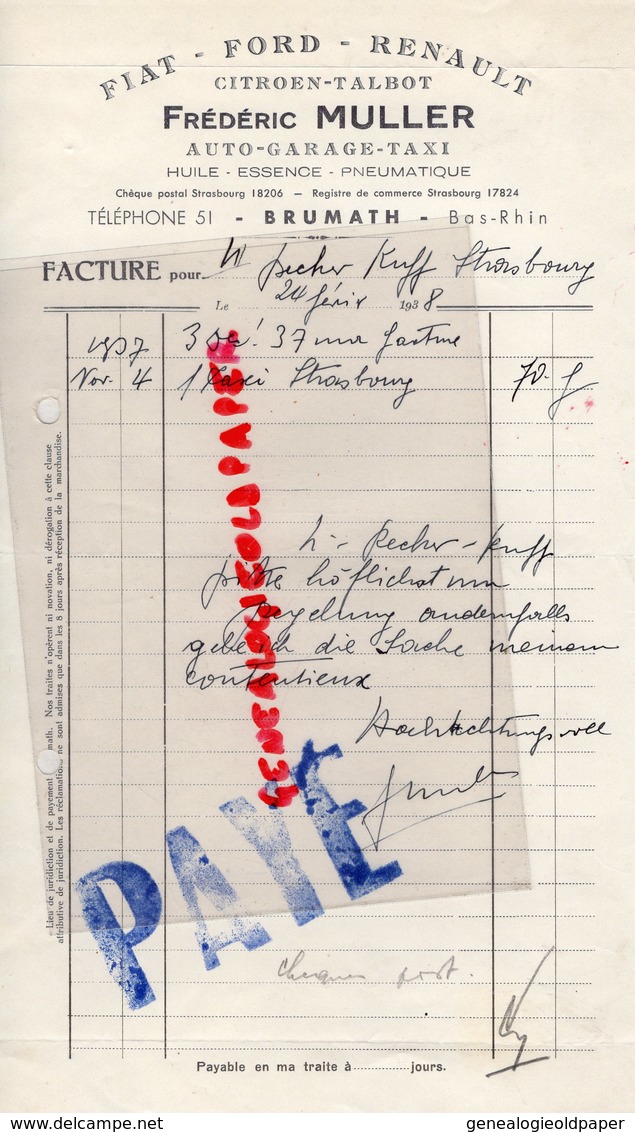 FIAT - FORD - RENAULT
CITROEN-TALBOT
FRÉDÉRIC MULLER
AUTO-GARAGE-TAXI
HUILE - ESSENCE - PNEUMATIQUE
Chèque postal Strasbourg 18206 — Registre de commerce Strasbourg 17824
TÉLÉPHONE 51 - BRUMATH - Bas-Rhin
FACTURE pour Kuff Strasbourg
Le 24 févir 1938
1937 3 37 ma facture
Nov. 4 1 Taxi Strasbourg 70.
H. Pecher-Kuff
bitte höflichst um
Regelung andernfalls
gebe ich die Sache meinem
contentieux
Hochachtungsvoll
GENEALOGIEOLDPAPER
PAYÉ
cheque post.
Payable en ma traite à jours.
Lieu de juridiction et de payement math. Nos traites n'opèrent ni novation, ni dérogation à cette clause
attributive de juridiction. Les réclamations ne sont admises que dans les 8 jours après réception de la marchandise.
delcampe.net
genealogieoldpaper